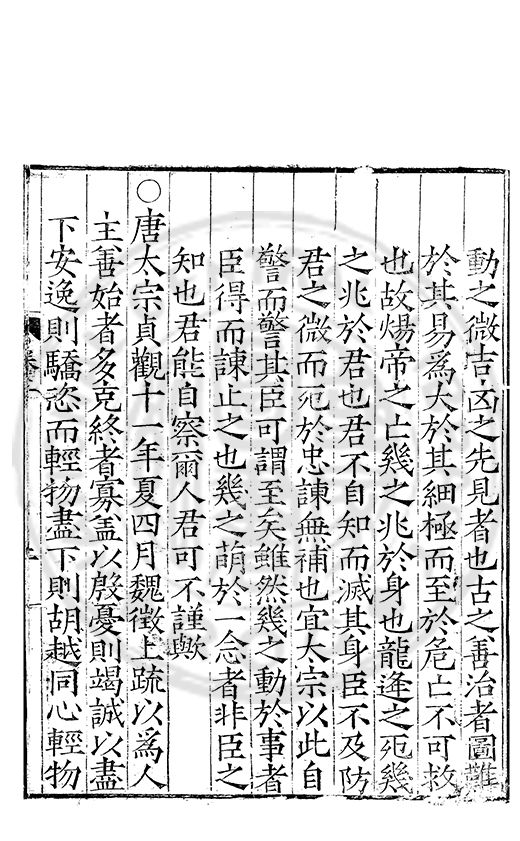 動之微吉凶之先見者也古之善治者圖難
於其易爲大於其細極而至於危亡不可救
也故煬帝之亡幾之兆於身也龍逄之死幾
之兆於君也君不自知而滅其身臣不及防
君之微而死於忠諫無補也宜太宗以此自
警而警其臣可謂至矣雖然幾之動於事者
臣得而諫止之也幾之萌於一念者非臣之
知也君能自察爾人君可不謹歟
○唐太宗貞觀十一年夏四月魏徵上疏以爲人
主善始者多克終者寡盖以殷憂則竭誠以盡
下安逸則驕恣而輕物盡下則胡越同心輕物